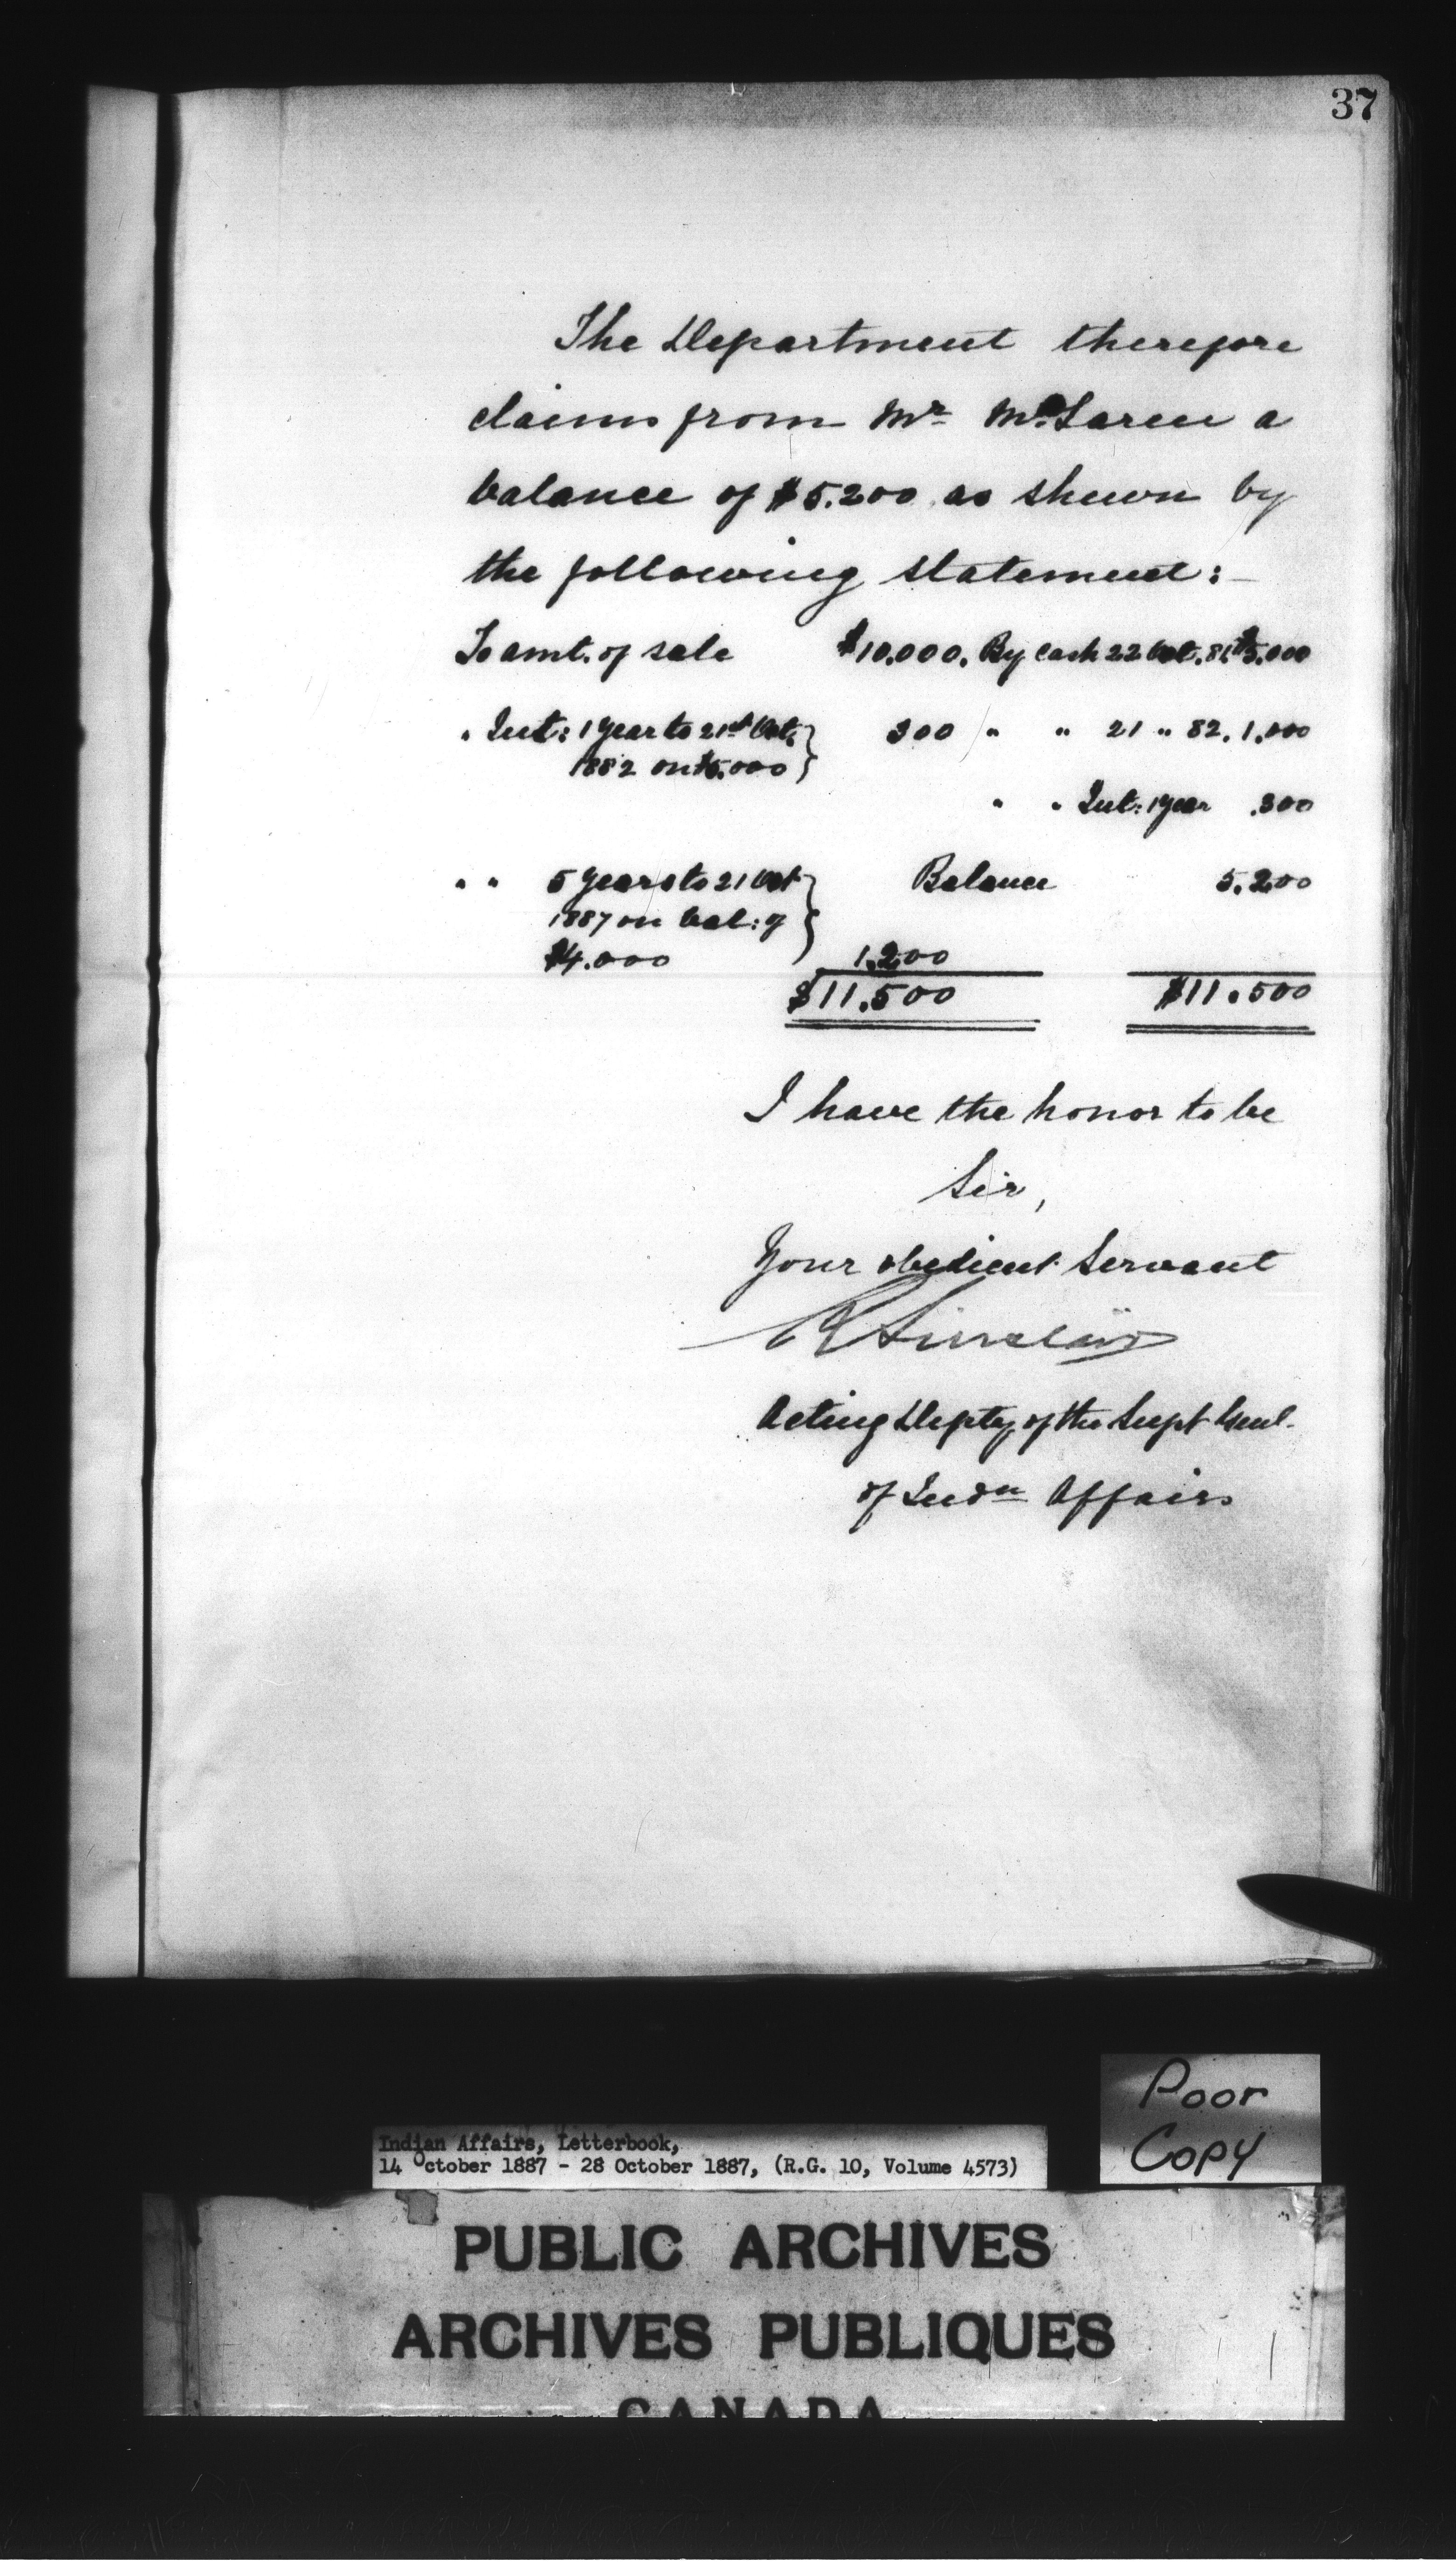 37
The Department therefore
claims from Mr McLaren a
balance of $5.200 as shewn by
the following statement:-
To amt. of sale $10.000. By cash 22 Oct. 81 $5.000
" Int: 1 year to 21st Oct. } 300 " " 21 " 82. 1.000
1882 on $5.000 }
" " Int: 1 year .300
" " 5 years to 21 Oct } Balance 5.200
1887 on bal: of }
$4.000 1.200
$11.500 $11.500
I have the honor to be
Sir,
Your obedient Servant
R Sinclair
Acting Depty of the Supt Genl.
of Indn Affairs
Poor
Copy
Indian Affairs, Letterbook,
14 October 1887 - 28 October 1887, (R.G. 10, Volume 4573)
PUBLIC ARCHIVES
ARCHIVES PUBLIQUES
CANADA